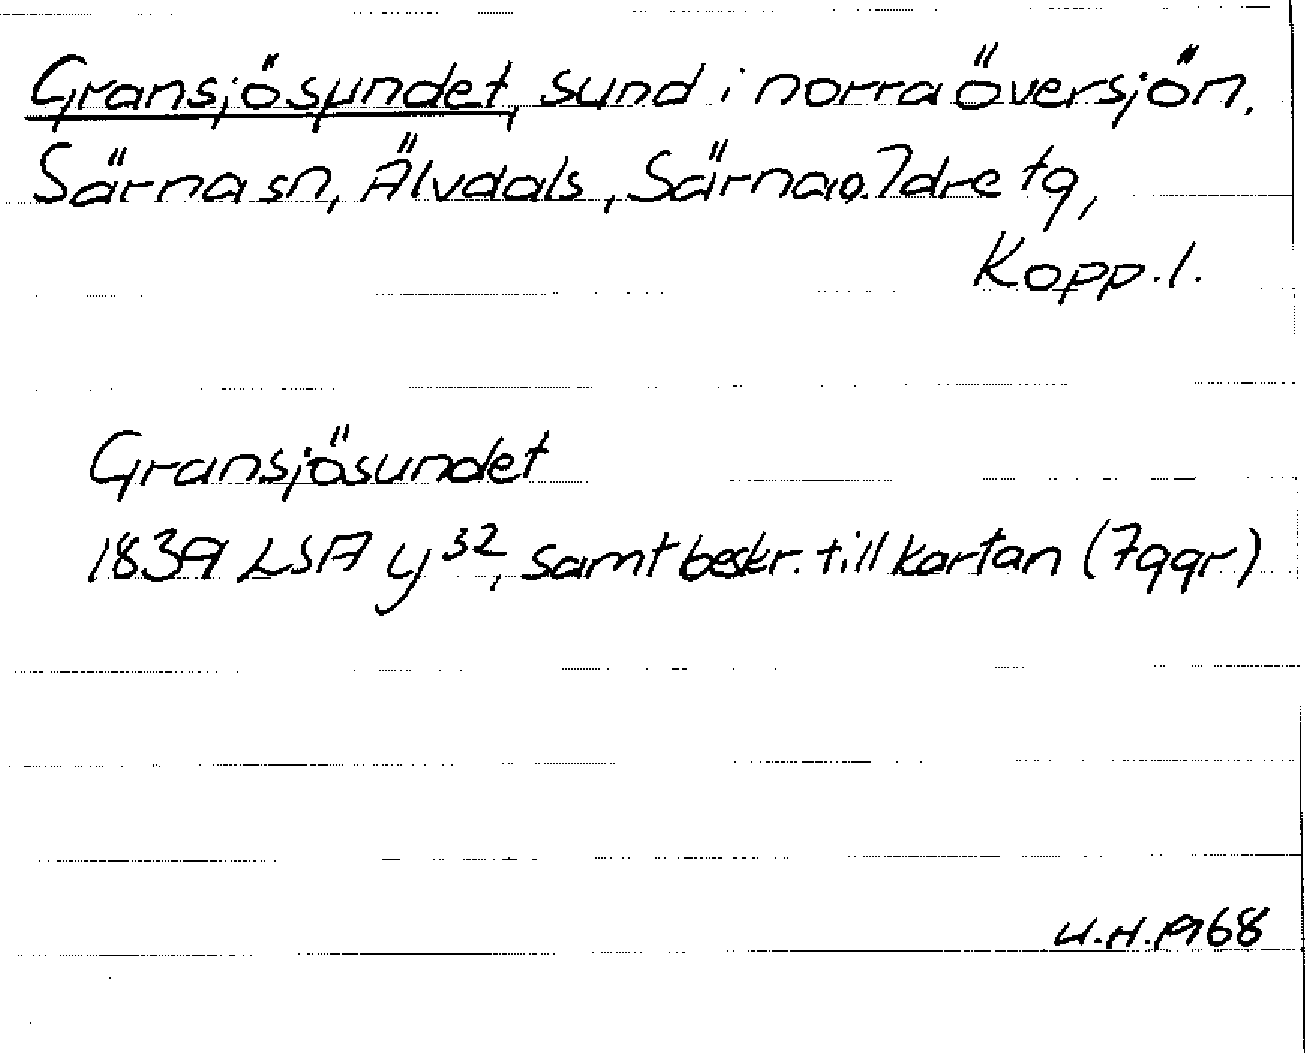 Gransjösundet, sund i norra Översjön.
Särna sn, Älvdals, Särna o. Idre tg,
Kopp. l.
Gransjösundet
1839 LSA y³², samt beskr. till kartan (7 ggr)
U.H. 1968